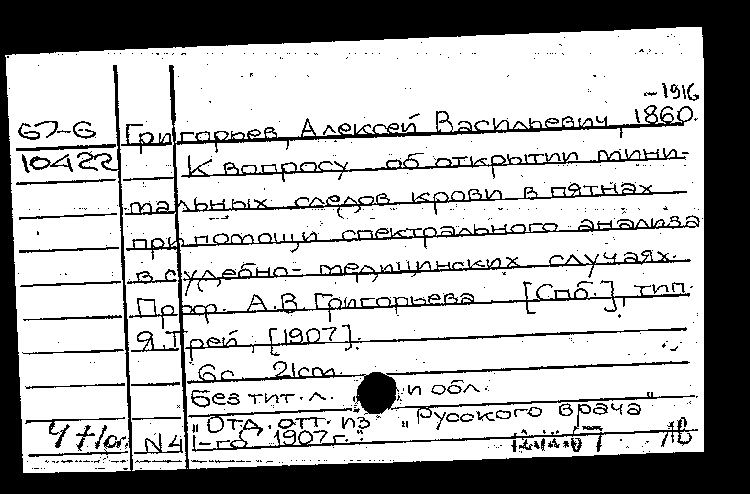 -1916
67-6 Григорьев, Алексей Васильевич, 1860.
10422 К вопросу об открытии мини-
мальных следов крови в пятнах
при помощи спектрального анализа
в судебно-медицинских случаях.
Проф. А.В Григорьева [Спб.], тип.
Я.Трей, [1907].
6с. 21см.
Без тит.л. и обл.
"Отд. отт. из "Русского врача"
N41-го 1907г."